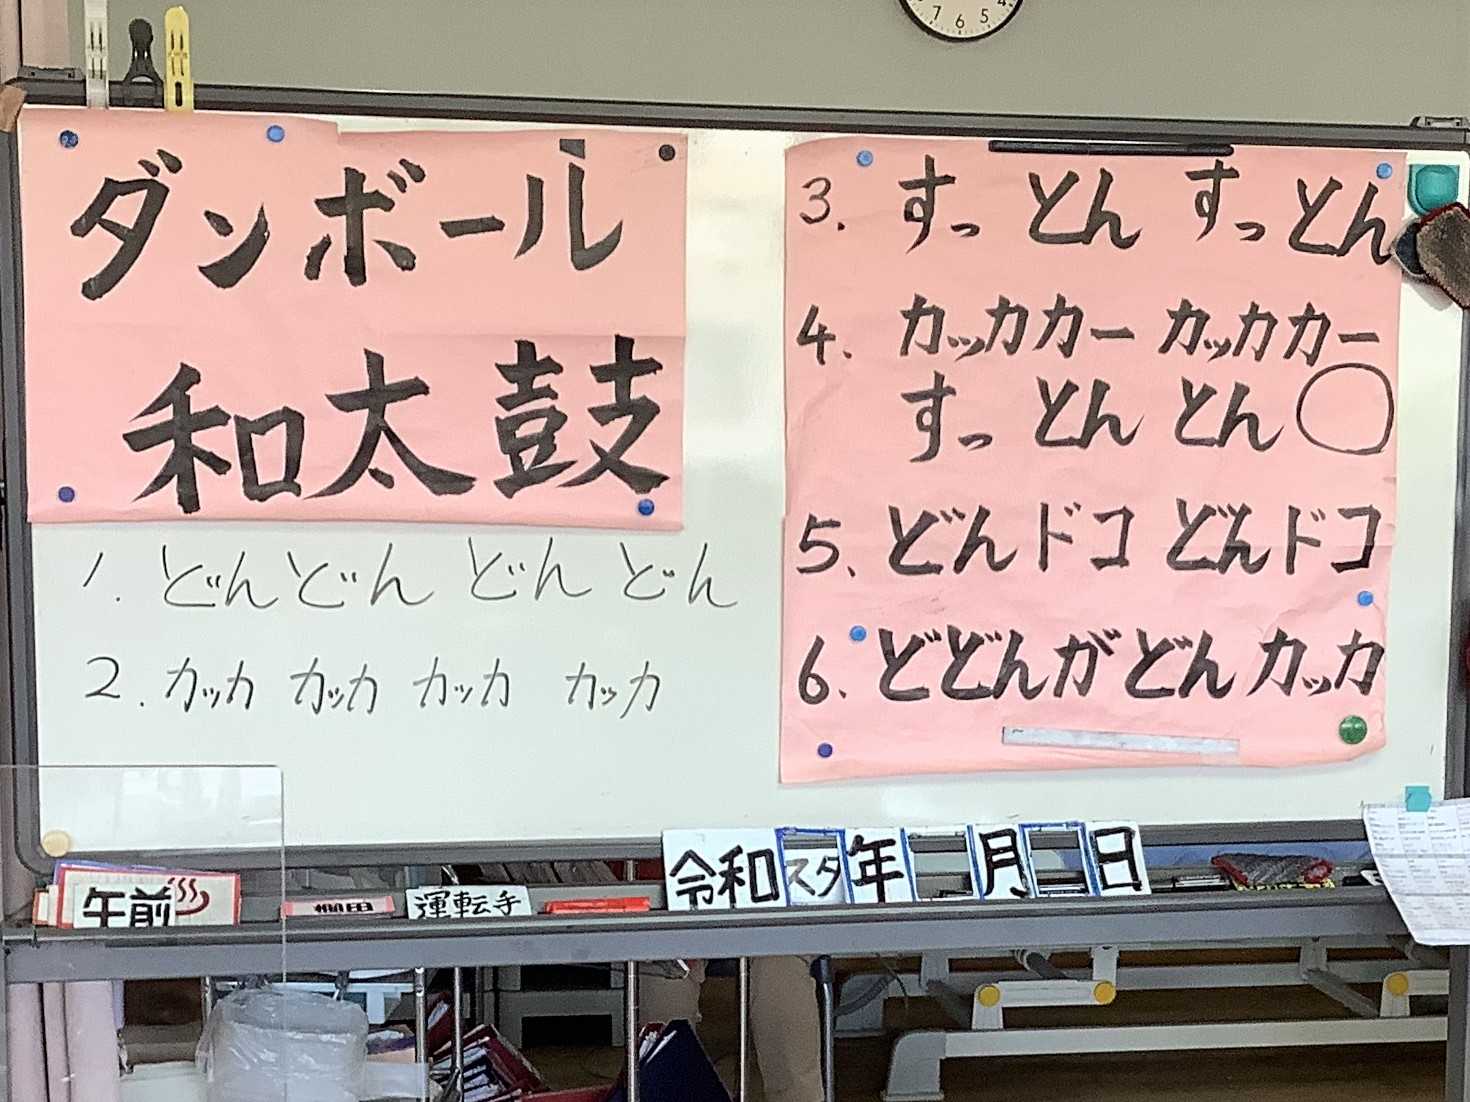 ダンボール
和太鼓
1. どんどん どん どん
2. カッカ カッカ カッカ カッカ
3. すっ とん すっ とん
4. カッカカー カッカカー
すっ とん とん ◯
5. どんドコ どんドコ
6. どどんが どん カッカ
7 6 5 4
午前
運転手
令和 スタ 年 月 日